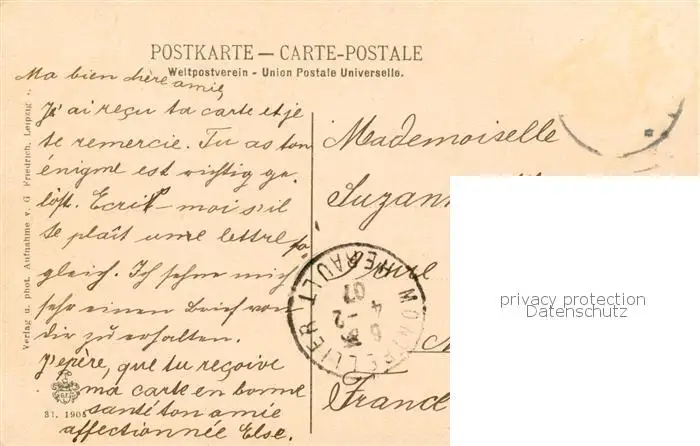 POSTKARTE — CARTE-POSTALE
Weltpostverein - Union Postale Universelle.
Ma bien chère amie,
J'ai reçu ta carte et je
te remercie. Tu as ton
énigme est richtig ge-
löst. Ecris-moi s'il
te plaît une lettre so-
gleich. Ich sehne mich
sehr einen Brief von
dir zu erhalten.
J'epère, que tu reçoive
ma carte en bonne
santé ton amie
affectionnée Else.
Mademoiselle
Suzann
rue
France
MONTPELLIER HERAULT
4 -2
07
Verlag u. phot. Aufnahme v. G Friedrich, Leipzig
31. 1905
privacy protection
Datenschutz